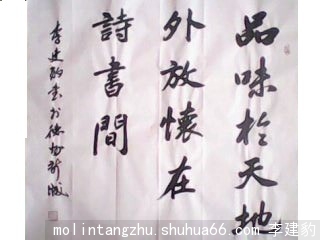 品味於天地
外放懷在
詩書間
李建豹书于
molintangzhu.shuhua66.com 李建豹